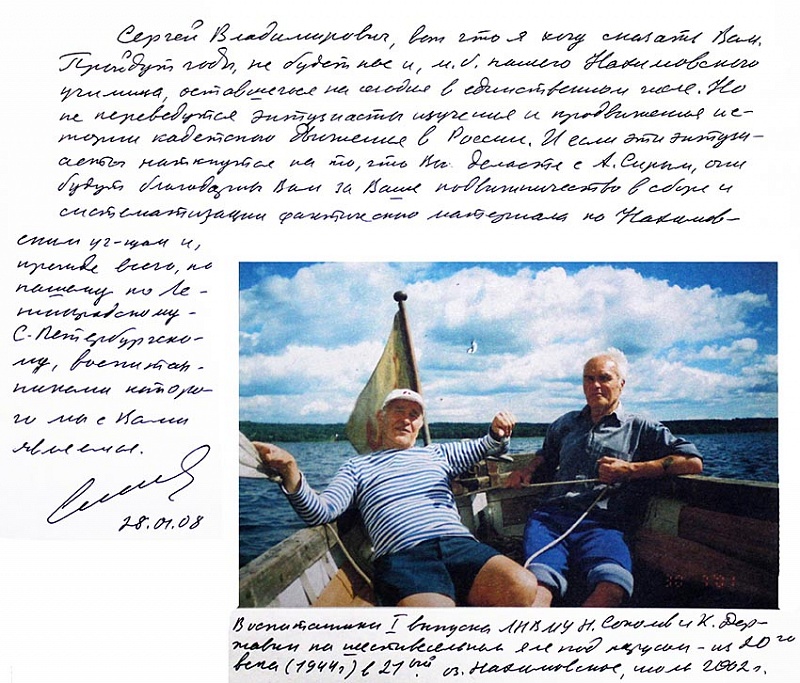 Сергей Владимирович, вот что я хочу сказать Вам.
Пройдут годы, не будет нас и, м.б. нашего Нахимовского
училища, оставшегося на сегодня в единственном числе. Но
не переведутся энтузиасты изучения и продвижения ис-
тории кадетского движения в России. И если эти энтузи-
асты наткнутся на то, что Вы делаете с А. Сирым, они
будут благодарны Вам за Ваше подвижничество в сборе и
систематизации фактического материала по Нахимов-
ским уч-щам и,
прежде всего, по
нашему по Ле-
нинградскому-
С-Петербургско-
му, воспитан-
никами которо-
го мы с Вами
являемся.
28.01.08
Воспитанники I выпуска ЛНВМУ Н. Соколов и К. Дер-
жавин на шестивесельном яле под парусом - из 20го
века (1944г) в 21ый. оз. Нахимовское, июль 2002г.